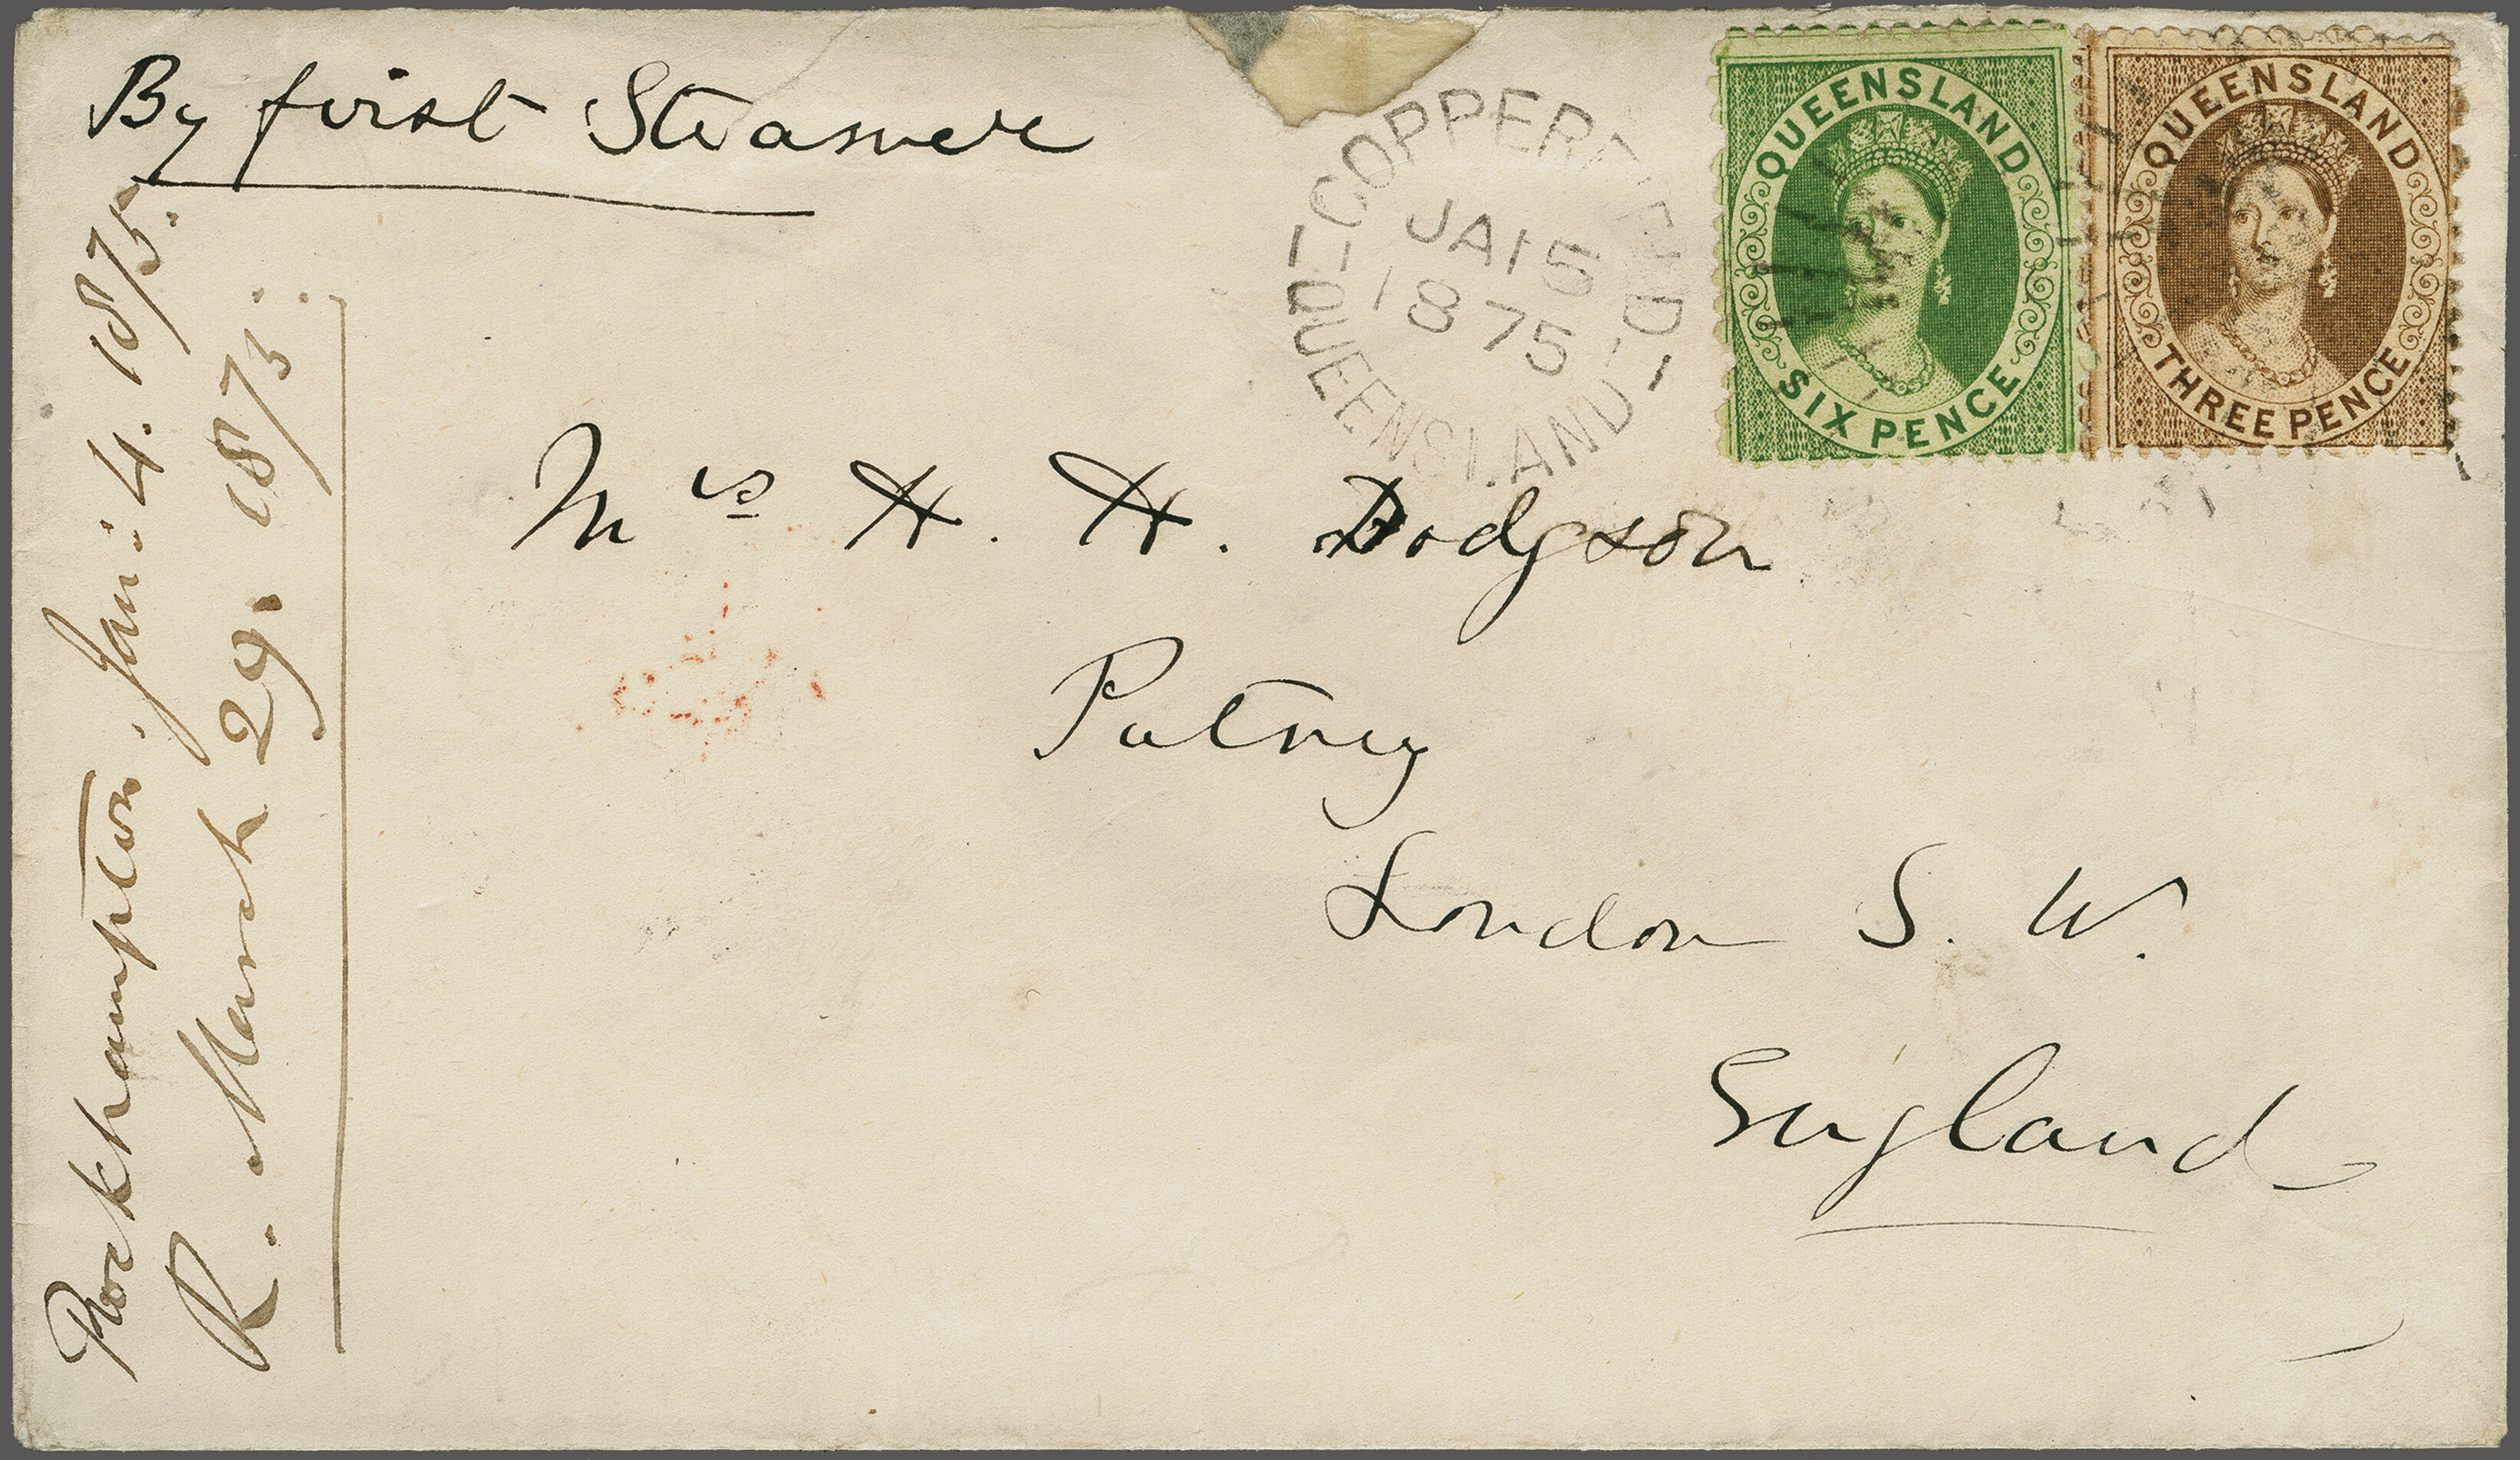 By first Steamer
COPPERFIELD
JA 15
1875
QUEENSLAND
QUEENSLAND
SIX PENCE
QUEENSLAND
THREE PENCE
Mrs H. H. Dodgson
Putney
London S. W.
England
Rockhampton. Jan: 4. 1875.
R. March 29. 1875.